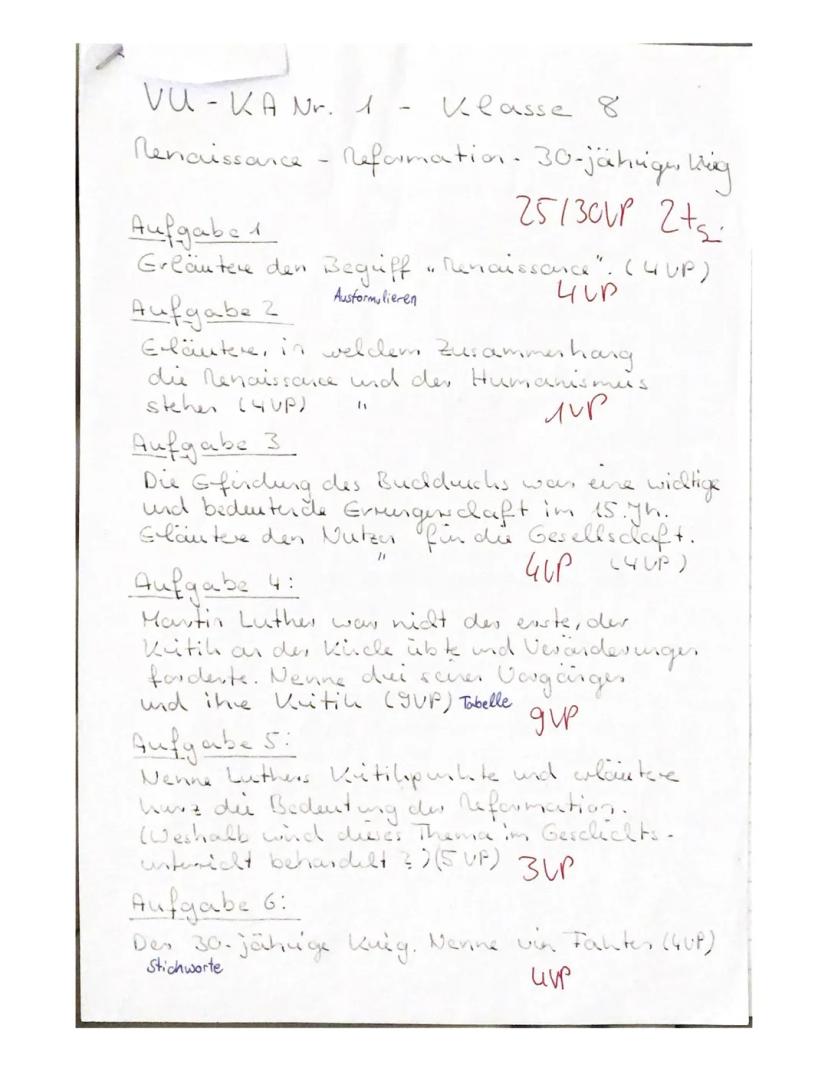 VU - KA Nr. 1 - Klasse 8
Renaissance - Reformation - 30-jähriger Krieg
25/30VP 2+
Aufgabe 1
Erläutere den Begriff „Renaissance". (4VP)
Ausformulieren 4VP
Aufgabe 2
Erläutere, in welchem Zusammenhang
die Renaissance und der Humanismus
stehen (4VP) " 1VP
Aufgabe 3
Die Erfindung des Buchdrucks war eine wichtige
und bedeutende Errungenschaft im 15. Jh.
Erläutere den Nutzen für die Gesellschaft.
" 4VP (4VP)
Aufgabe 4:
Martin Luther war nicht der erste, der
Kritik an der Kirche übte und Veränderungen
forderte. Nenne drei seiner Vorgänger
und ihre Kritik (9VP) Tabelle
9VP
Aufgabe 5:
Nenne Luthers Kritikpunkte und erläutere
kurz die Bedeutung der Reformation.
(Weshalb wird dieses Thema im Geschichts-
unterricht behandelt?) (5VP) 3VP
Aufgabe 6:
Der 30-jährige Krieg. Nenne vier Fakten (4VP)
Stichworte 4VP